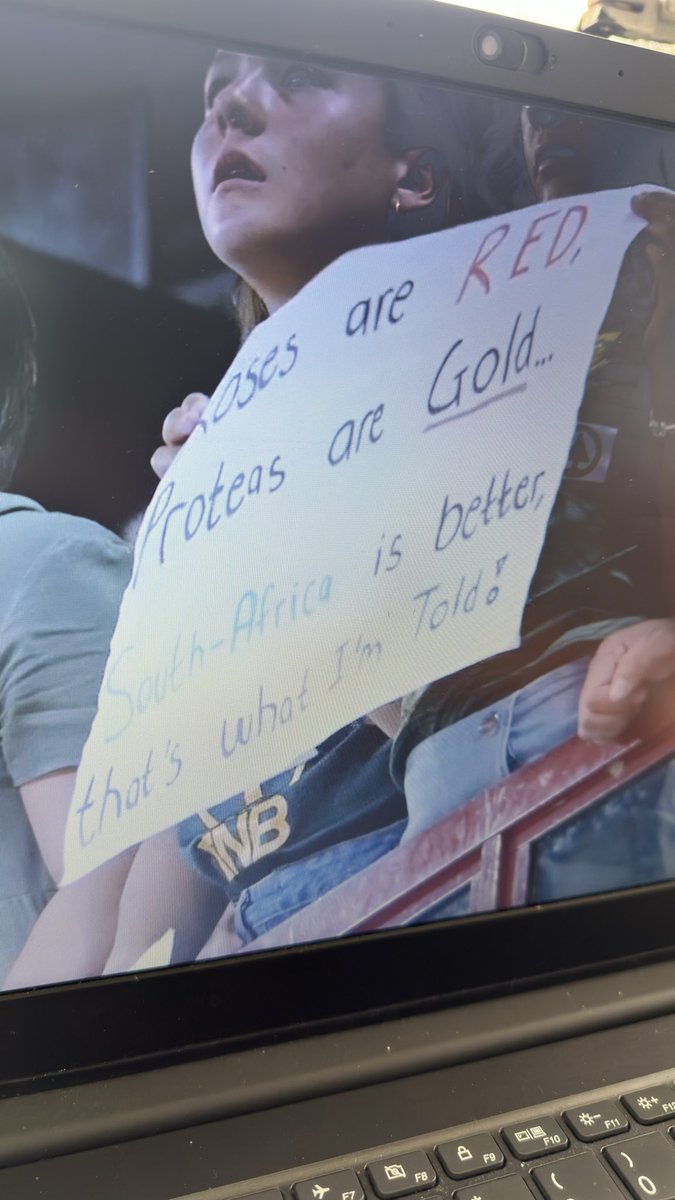 Roses are RED,
Proteas are Gold...
South-Africa is better,
that's what I'm Told!
NB
F7
F8
F9
F10
F11
F12